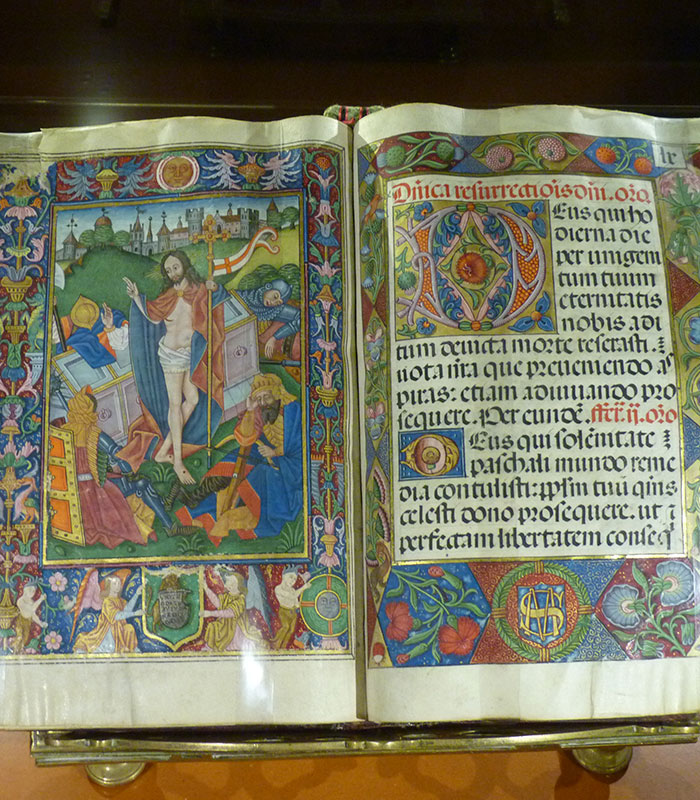 Dñica resurrectiõis dñi. oro.
Eus qui ho
dierna die
per unigeni
tum tuum
eternitatis
nobis adi
tum devicta morte reserasti:
vota nrã que preveniendo as
piras: etiam adiuvando pro
sequere. Per eundẽ. oro
Eus qui solẽnitate
paschali mundo reme
dia contulisti: pplm tuũ qms
celesti dono prosequere. ut
perfectam libertatem conseq̃